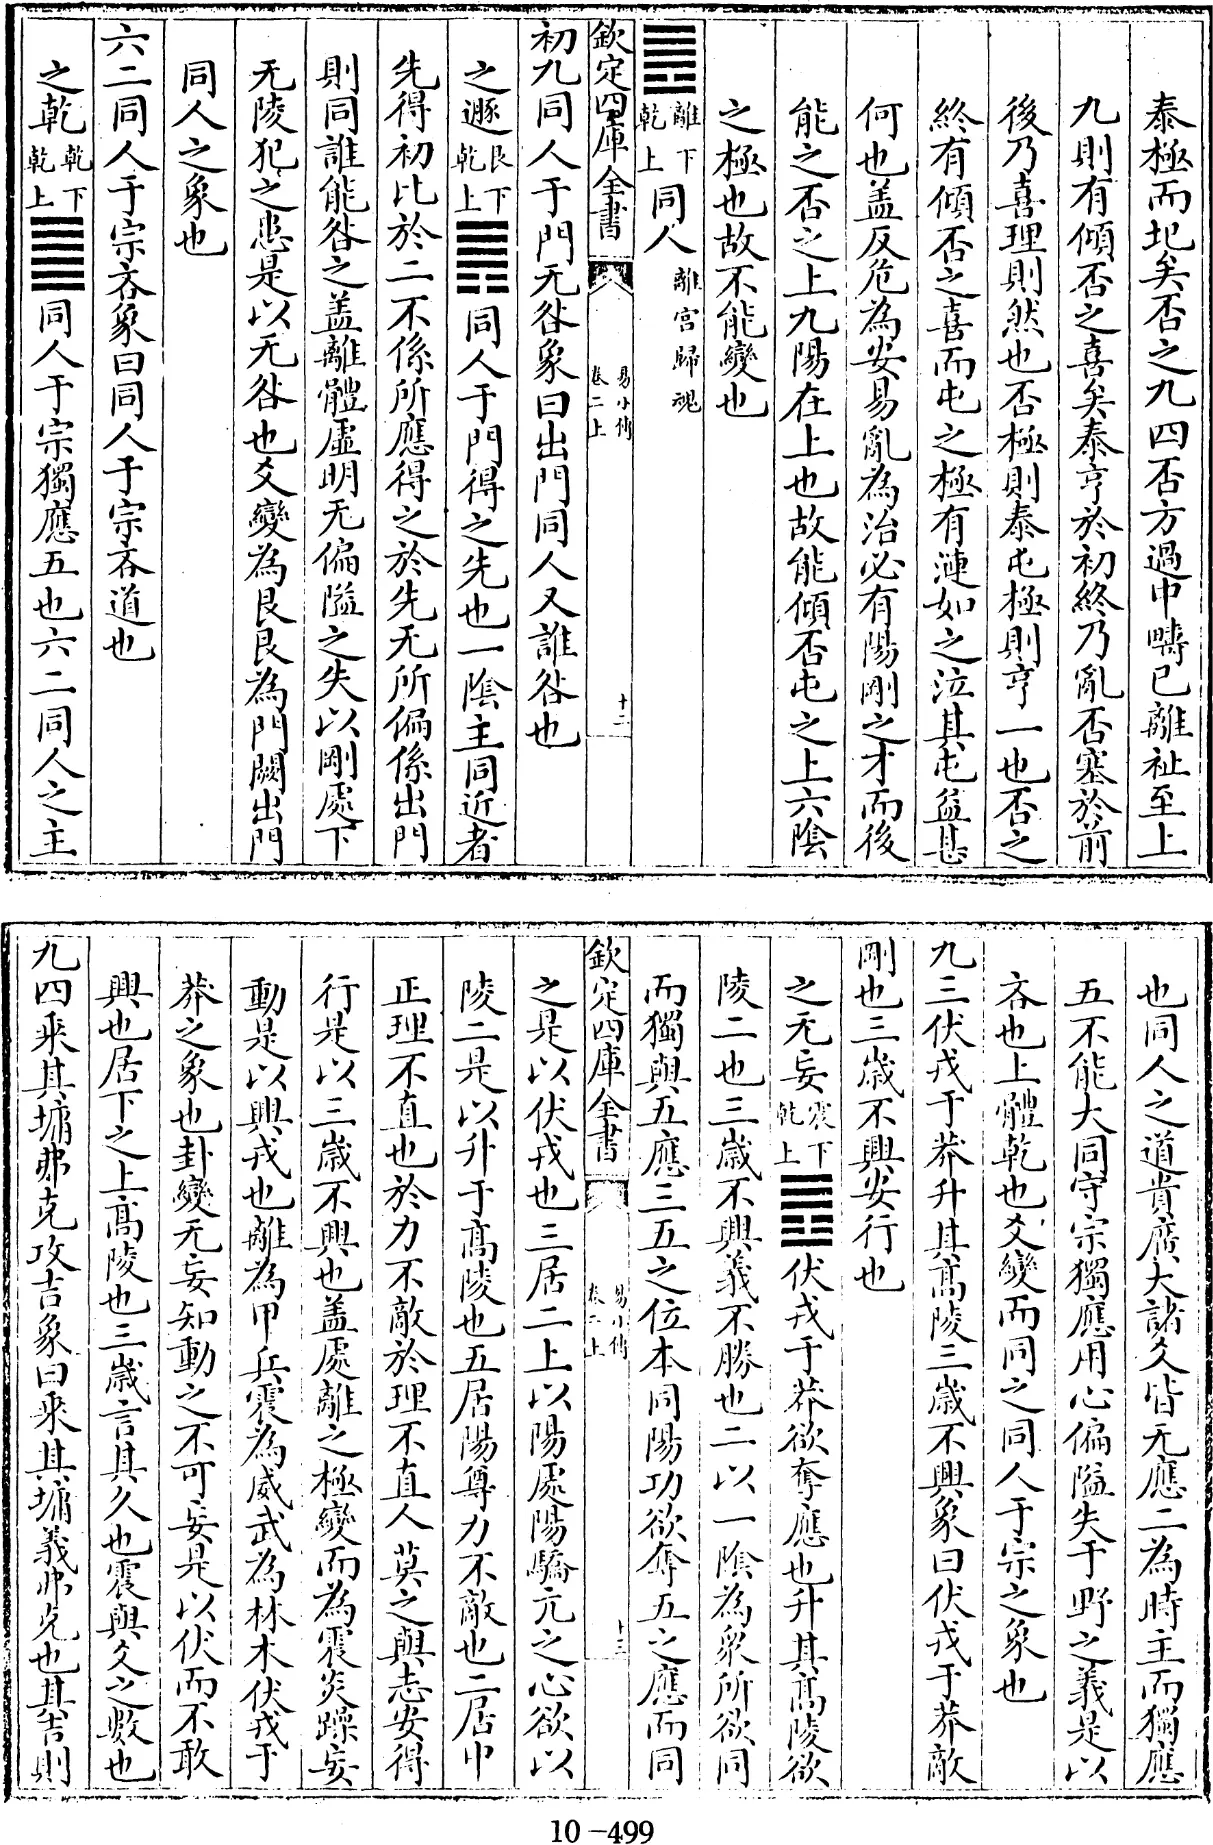 泰極而圯矣否之九四否方過中疇已離祉至上
九則有傾否之喜矣泰亨於初終乃亂否塞於前
後乃喜理則然也否極則泰屯極則亨一也否之
終有傾否之喜而屯之極有漣如之泣其屯益甚
何也盖反危為安易亂為治必有陽剛之才而後
能之否之上九陽在上也故能傾否屯之上六陰
之極也故不能變也
䷌離下乾上同人離宮歸魂
欽定四庫全書
易小傳
卷二上
十二
初九同人于門无咎象曰出門同人又誰咎也
之遯艮下乾上䷠同人于門得之先也一陰主同近者
先得初比於二不係所應得之於先无所偏係出門
則同誰能咎之盖離體虛明无偏隘之失以剛處下
无陵犯之患是以无咎也爻變為艮艮為門闕出門
同人之象也
六二同人于宗吝象曰同人于宗吝道也
之乾乾下乾上䷀同人于宗獨應五也六二同人之主
也同人之道貴廣大諸爻皆无應二為時主而獨應
五不能大同守宗獨應用心偏隘失于野之義是以
吝也上體乾也爻變而同之同人于宗之象也
九三伏戎于莽升其高陵三歲不興象曰伏戎于莽敵
剛也三歲不興安行也
之无妄震下乾上䷘伏戎于莽欲奪應也升其高陵欲
陵二也三歲不興義不勝也二以一陰為衆所欲同
而獨與五應三五之位本同陽功欲奪五之應而同
欽定四庫全書
易小傳
卷二上
十三
之是以伏戎也三居二上以陽處陽驕亢之心欲以
陵二是以升于高陵也五居陽尊力不敵也二居中
正理不直也於力不敵於理不直人莫之與志安得
行是以三歲不興也盖處離之極變而為震炎躁妄
動是以興戎也離為甲兵震為威武為林木伏戎于
莽之象也卦變无妄知動之不可妄是以伏而不敢
興也居下之上高陵也三歲言其久也震與爻之數也
九四乘其墉弗克攻吉象曰乘其墉義弗克也其吉則
10-499